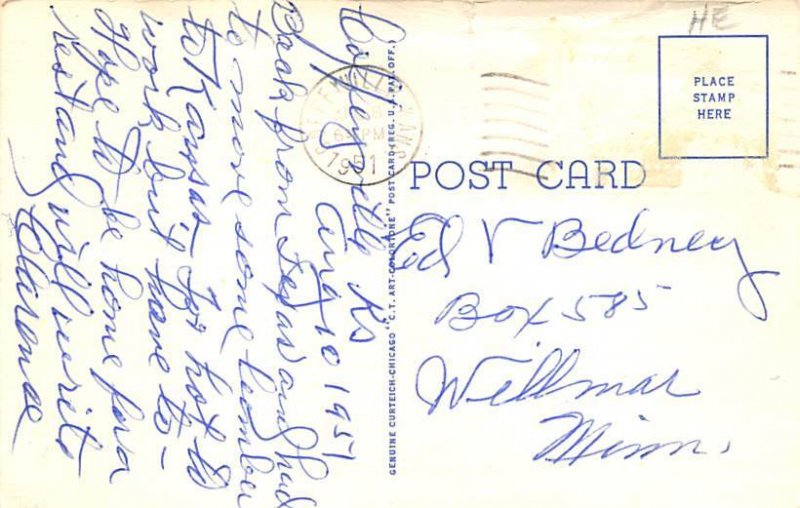 Coffeyville Ks
Aug 10 1951
Back from Texas and had
to move some lumber
to Kansas - Too hot to
work but have to -
Hope to be home for a
rest and will write
Clarence
HE
PLACE
STAMP
HERE
1951
POST CARD
Ed V Bedney
Box 585
Willmar
Minn.
GENUINE CURTEICH-CHICAGO "C.T. ART-COLORTONE" POST CARD (REG. U.S. PAT. OFF.)